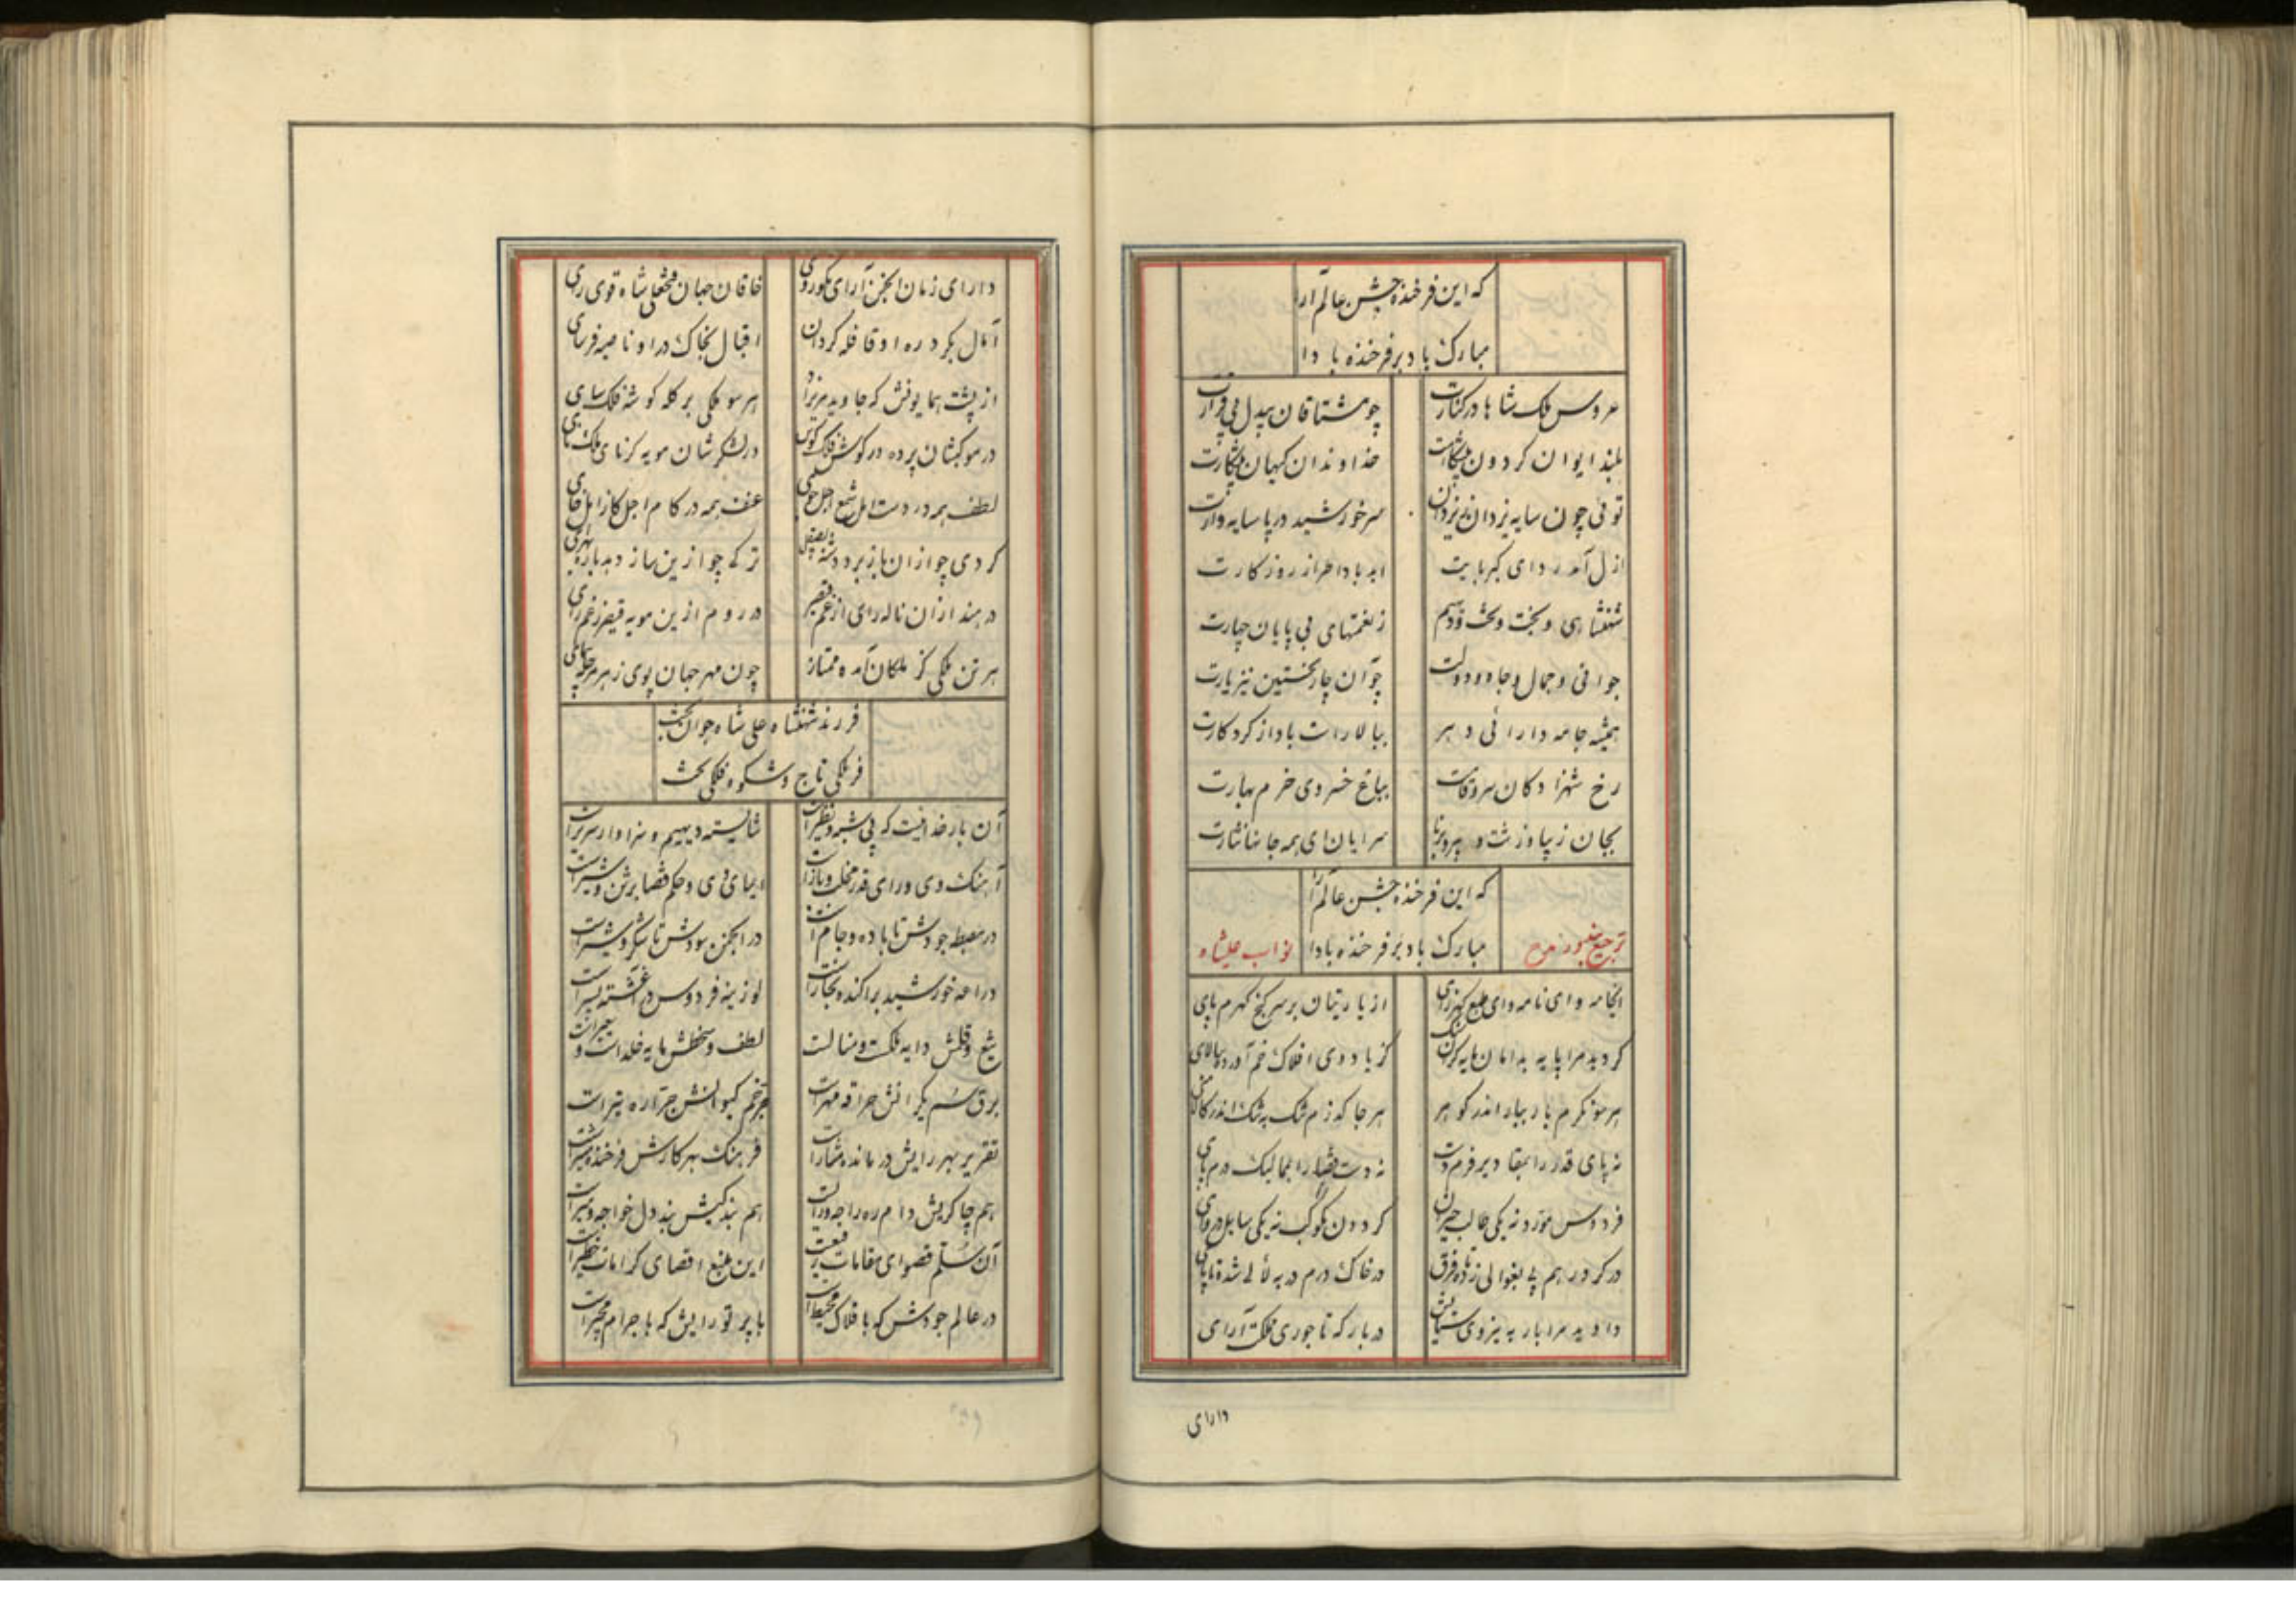 که این فرخنده جشن عالم آرا
مبارک باد بر فرخنده بادا
عروس ملک شاها در کنارت
چو مشتاقان بیدل بی قرارت
بلند ایوان گردون پیشگاهت
خداوندان کیهان پیشکارت
توئی چون سایه یزدان
سر خورشید در پا سایه وارت
ازل آمد ردای کبریایت
ابد بادا طراز روزگارت
شهنشاهی و بخت و تخت و دیهیم
ز نعمتهای بی پایان چهارت
جوانی و جمال و جاه و دولت
چو آن چار نخستین نیز یارت
همیشه جامه دارائی دهر
ببالا راست باد از کردگارت
رخ شهزادگان سرو قامت
بباغ خسروی خرم بهارت
بجان زیبا و زشت و پیر و برنا
سرایان ای همه جانها نثارت
که این فرخنده جشن عالم آرا
مبارک باد بر فرخنده بادا
ترجیع در مدح
نواب علیشاه
ایخامه وای نامه وای طبع گهرزای
از یاریتان بر سر گنج گهرم پای
گردید مرا پایه بدامان
کز باد وی افلاک خم آورده ببالای
هر سو نگرم بار ببار اندر گوهر
هر جا گذرم تنگ به تنگ اندر
نه پای قدر را بمقادیر فزم دست
نه دست قضا را بممالیک درم پای
فردوس موزد نه یکی طالب حیران
گردون بکوکب نه یکی سایل دروای
در گرد رهم پی بغوالی زده فرق
در خاک درم در به لآلی شده تا پای
دادید مرا بار به نیروی ستایش
در بارگه تاجوری مملکت آرای
دارای
دارای زمان انجمن آرای نکوروی
خاقان جهان فتحعلی شاه قوی رای
آمال بگرد ره او قافله گردان
اقبال بخاک در او ناصیه فرسای
از پشت همایونش که جاوید مریزاد
هر سو ملکی بر کله گوشه فلک سای
در موکبشان پرده در گوش فلک کوس
در لشکرشان مویه گر نای ملک نای
لطف همه در دست امل شمع اجل جوی
عنف همه در کام اجل کاز امل خای
گردی چو ازان باز برد دشنه بصیقل
ترکی چو ازین ساز دهد باره بهرای
در هند ازان ناله رای از غم قیصر
در روم ازین مویه قیصر ز غم رای
هر تن ملکی کز ملکان آمده ممتاز
چون مهر جهان پوی ز هر مرحله پیمای
فرزند شهنشاه علی شاه جوان بخت
فر ملکی تاج و شکوه فلکی تخت
آن بار خدائیست که بی شبه و نظیر است
شایسته دیهیم و سزاوار سریر است
آهنگ وی و رای قدر مخلب و باز است
ایمای وی و حکم قضا برثن و شیر است
در مصطبه جودش تا باده و جام است
در انجمن سودش تا شکر و شیر است
دراعه خورشید پراکنده بخار است
لوزینه فردوس دم آغشته بسیر است
تیغ و قلمش دایه فکت و منالت
لطف و سخطش مایه خلد است و سعیر است
برق سم یکرانش حراقه مهر است
چرخم کیوانش جراره تیر است
تقریر بهر رایش درمانده مشار است
فرهنگ بهر کارش فرخنده مشیر است
هم چاکریش دام ره راجه و رایست
هم بندگیش بند دل خواجه و میر است
آن سلم قصوای مقامات رفیعست
این منبع اقصای کرامات خطیر است
در عالم جودش که بافلاک محیط است
با پرتو رایش که باجرام مجیر است